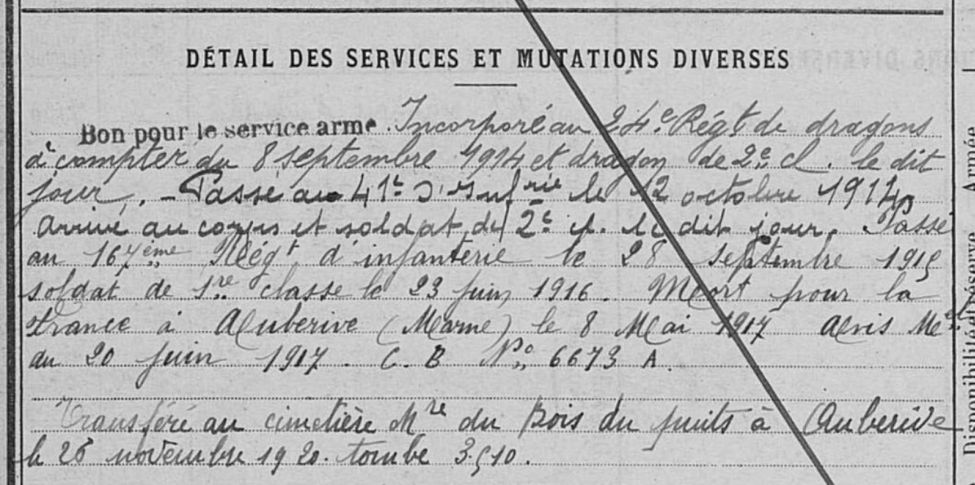 DÉTAIL DES SERVICES ET MUTATIONS DIVERSES
Bon pour le service armé. Incorporé au 24e Régt de dragons
à compter du 8 septembre 1914 et dragon de 2e cl. le dit
jour. - Passé au 41e d'Infrie le 12 octobre 1914
Arrivé au corps et soldat de 2e cl. le dit jour. Passé
au 167ème Régt d'infanterie le 28 septembre 1915
soldat de 1re classe le 23 juin 1916. Mort pour la
France à Auberive (Marne) le 8 Mai 1917 Avis Mel
du 20 juin 1917. C. B No 6673 A.
Transféré au cimetière Mre du Bois du puits à Auberive
le 26 novembre 1920. tombe 3510.